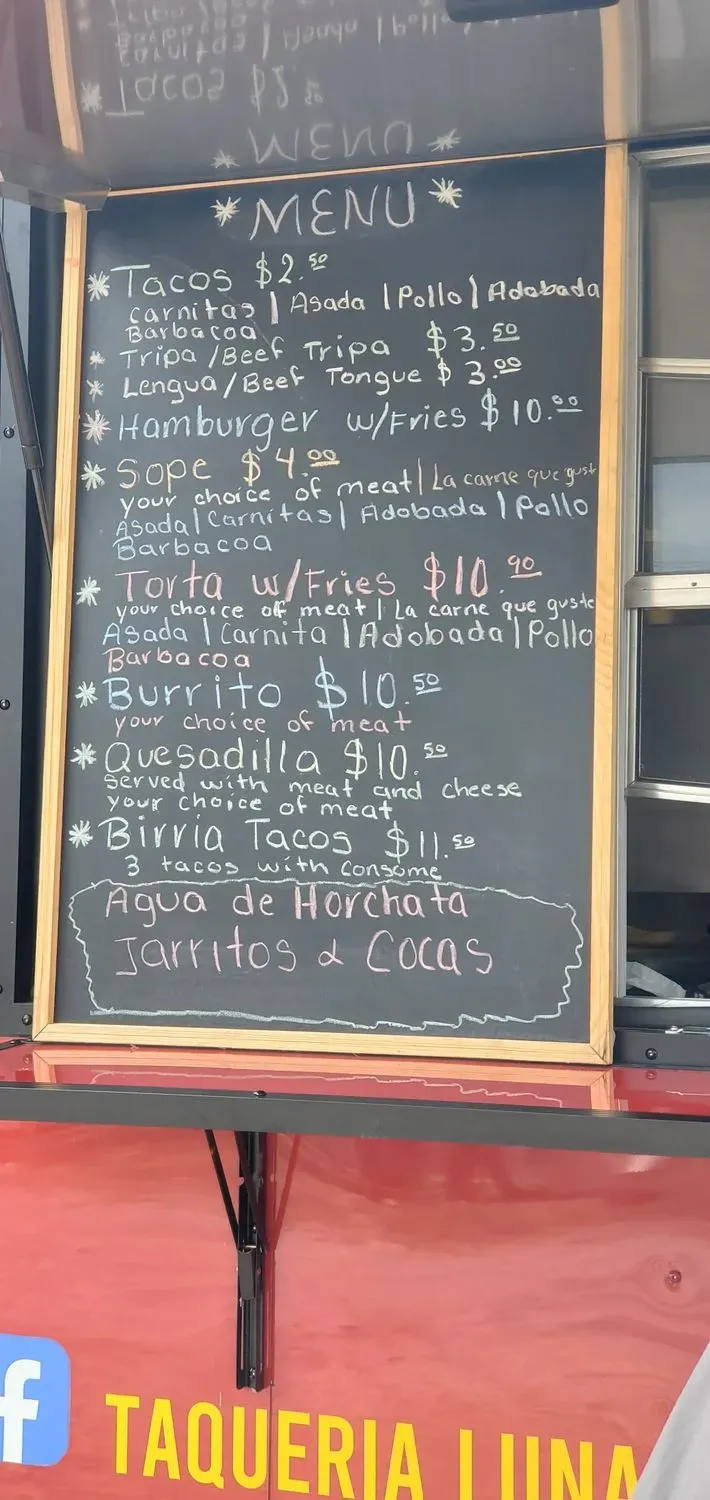 * MENU *
* Tacos $2.50
carnitas | Asada | Pollo | Adobada
Barbacoa
* Tripa/Beef Tripa $3.50
* Lengua/Beef Tongue $3.00
* Hamburger w/Fries $10.00
* Sope $4.00
your choice of meat | La carne que gust
Asada | Carnitas | Adobada | Pollo
Barbacoa
* Torta w/Fries $10.90
your choice of meat | La carne que guste
Asada | Carnita | Adobada | Pollo
Barbacoa
* Burrito $10.50
your choice of meat
* Quesadilla $10.50
served with meat and cheese
your choice of meat
* Birria Tacos $11.50
3 tacos with consome
Agua de Horchata
Jarritos & Cocas
f
TAQUERIA LUNA